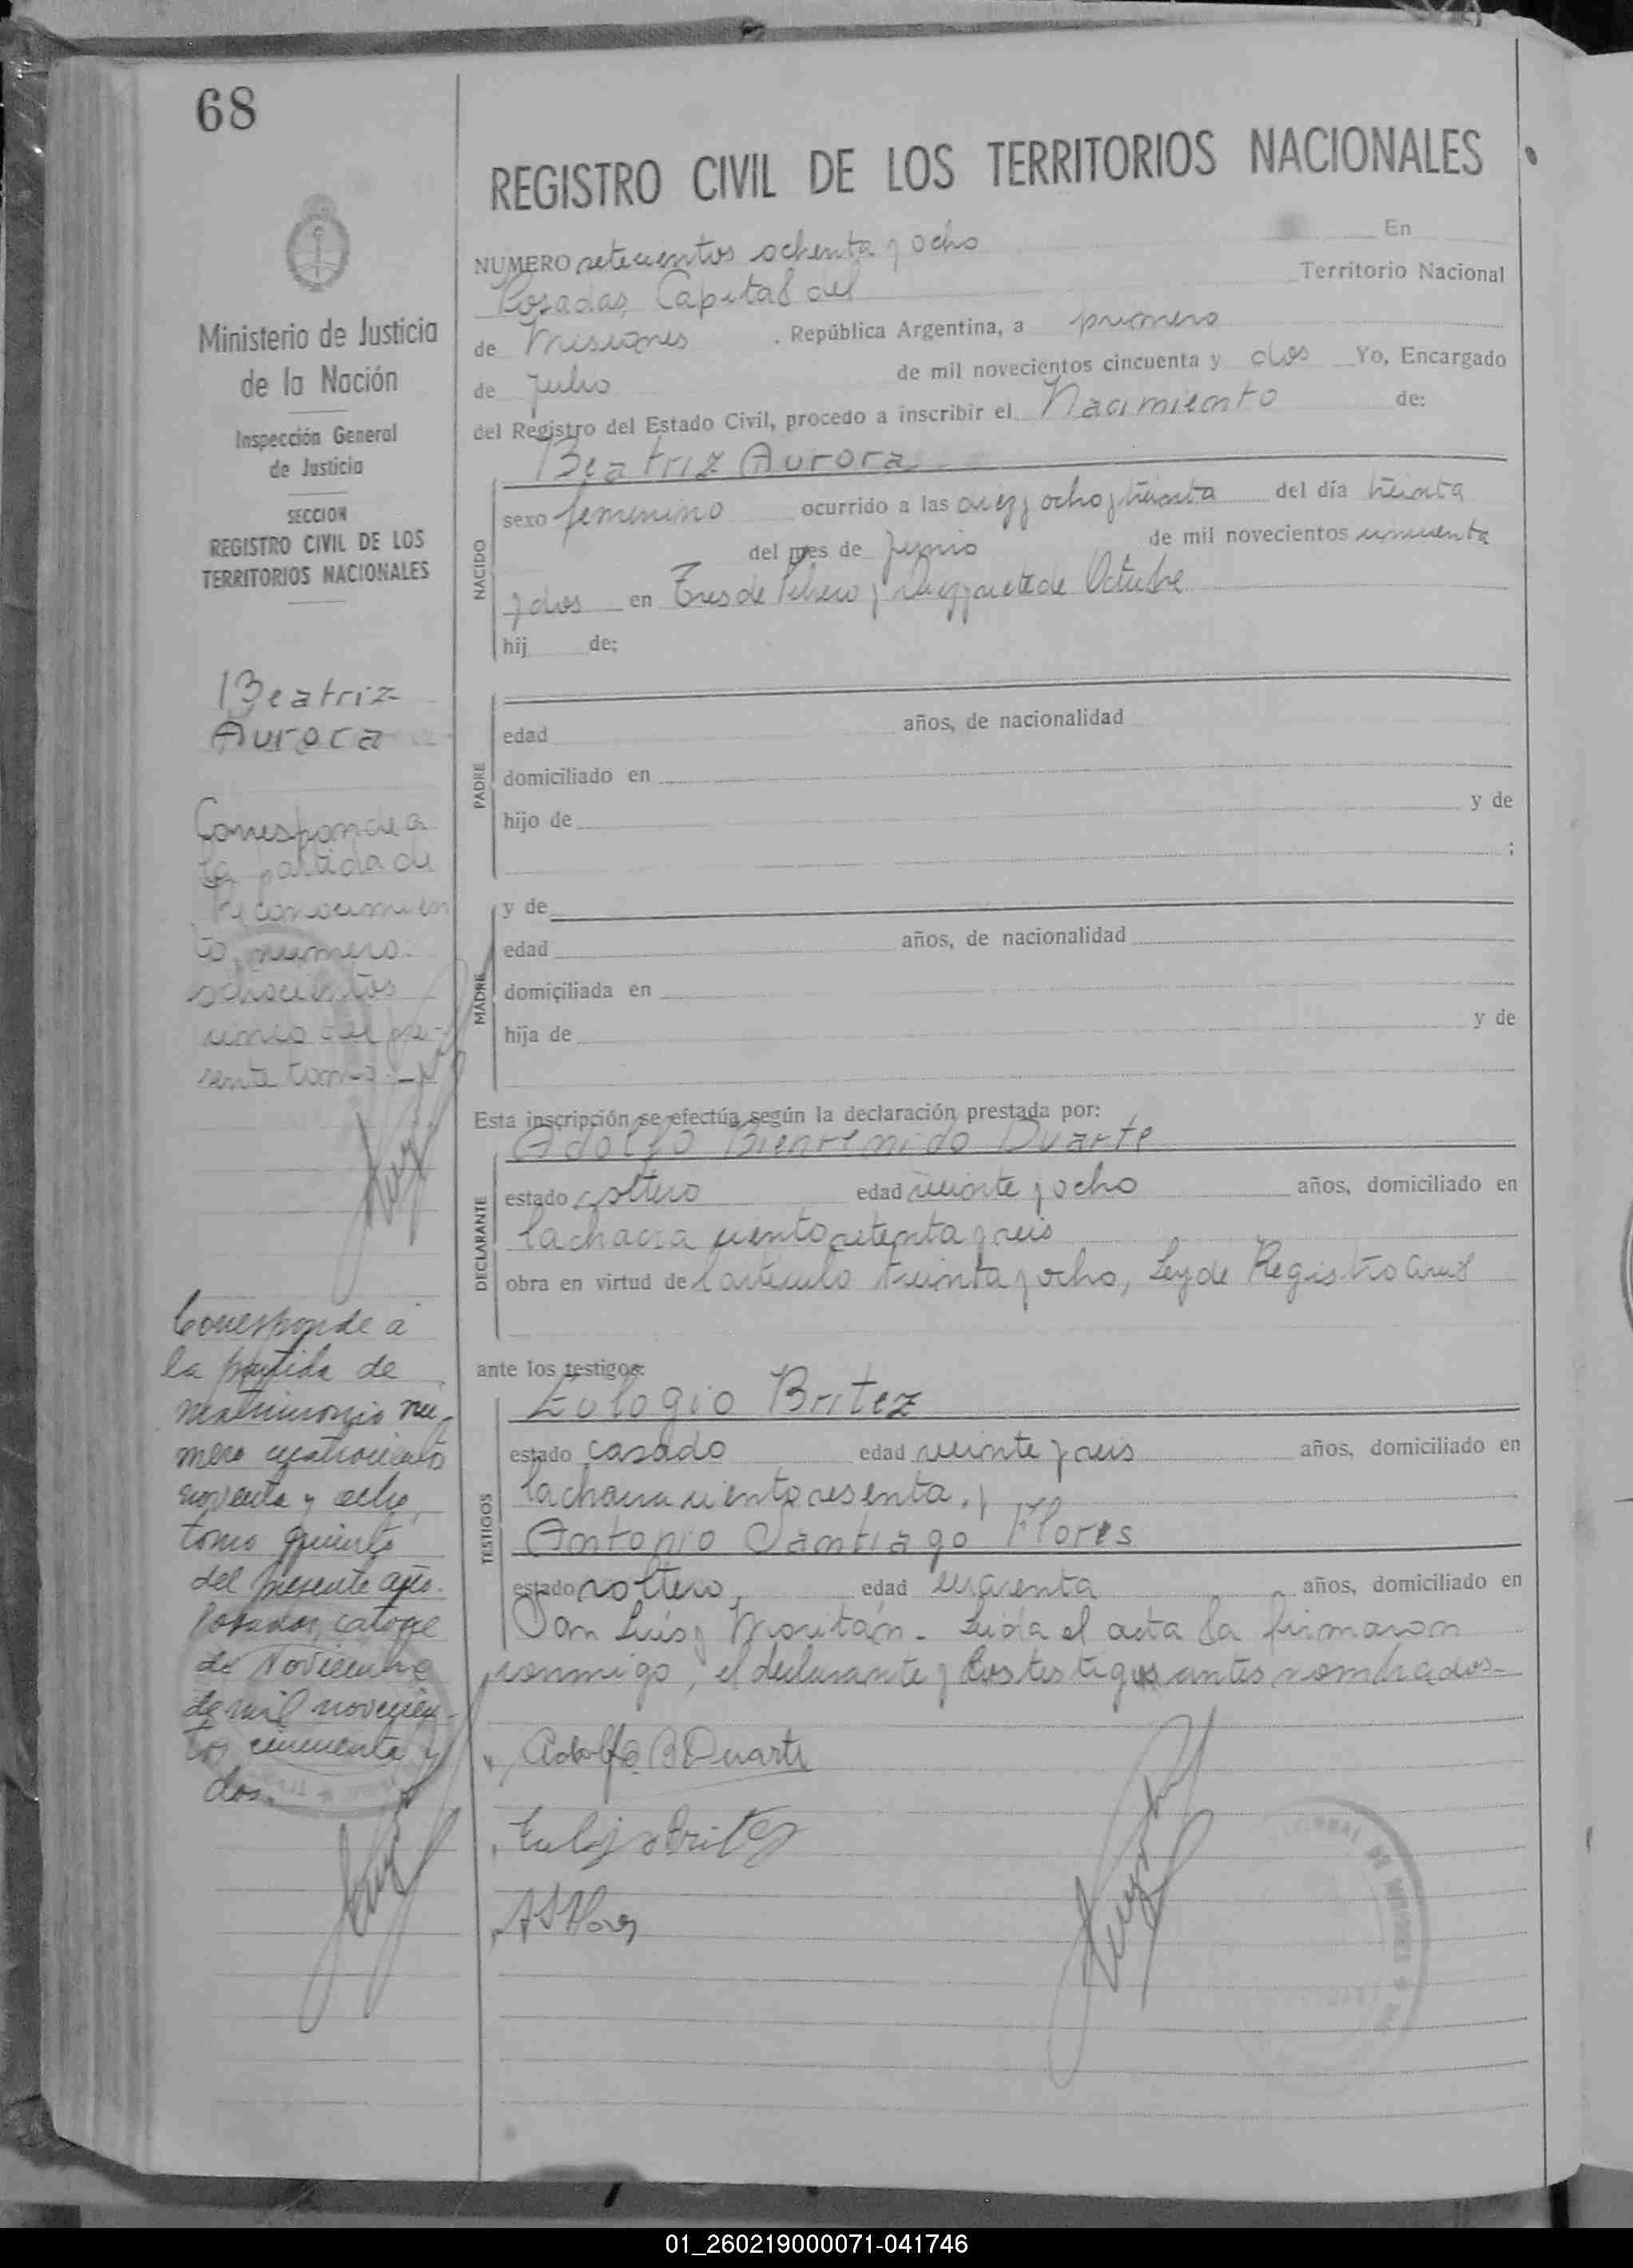 68
Ministerio de Justicia
de la Nación
Inspección General
de Justicia
SECCION
REGISTRO CIVIL DE LOS
TERRITORIOS NACIONALES
Beatriz
Aurora
Corresponde a
la partida de
Reconocimien
to, numero:
ochocientos
cinco del pre-
sente tomo.-
Corresponde a
la partida de
matrimonio nu-
mero cuatrocientos
noventa y ocho,
tomo quinto
del presente año.
Posadas, catorce
de Noviembre
de mil novecien-
tos cincuenta y
dos.
REGISTRO CIVIL DE LOS TERRITORIOS NACIONALES
NUMERO setecientos ochenta y ocho En
Posadas, Capital del Territorio Nacional
de Misiones, República Argentina, a primero
de Julio de mil novecientos cincuenta y dos Yo, Encargado
del Registro del Estado Civil, procedo a inscribir el Nacimiento de:
Beatriz Aurora
NACIDO
sexo femenino ocurrido a las diez y ocho y treinta del día treinta
del mes de Junio de mil novecientos cincuenta
y dos en Tres de Febrero y diez y siete de Octubre
hij de;
PADRE
edad años, de nacionalidad
domiciliado en
hijo de y de
;
MADRE
y de
edad años, de nacionalidad
domiciliada en
hija de y de
Esta inscripción se efectúa según la declaración prestada por:
Adolfo Bienvenido Duarte
DECLARANTE
estado soltero edad veinte y ocho años, domiciliado en
la chacra ciento setenta y seis
obra en virtud del artículo treinta y ocho, Ley de Registro Civil
ante los testigos:
Eulogio Britez
TESTIGOS
estado casado edad veinte y seis años, domiciliado en
la chacra ciento sesenta, y
Antonio Santiago Flores
estado soltero, edad cuarenta años, domiciliado en
San Luis y Moritán. Leida el acta la firmaron
conmigo, el declarante y los testigos antes nombrados.-
Adolfo B Duarte
Eulojio Britez
A S Flores
01_260219000071-041746